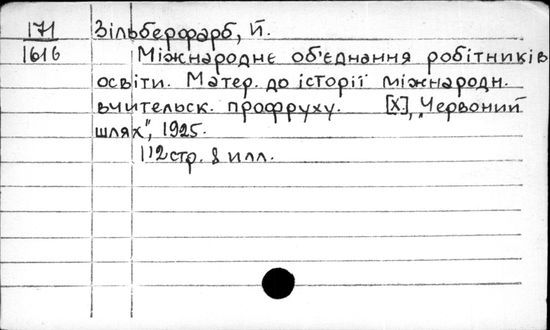 171 Зільберфарб, Й.
1616 Міжнародне об'єднання робітників
освіти. Матер. до історії міжнародн.
вчительск. профруху. [Х], „Червоний
шлях", 1925.
112 стр. 8 илл.